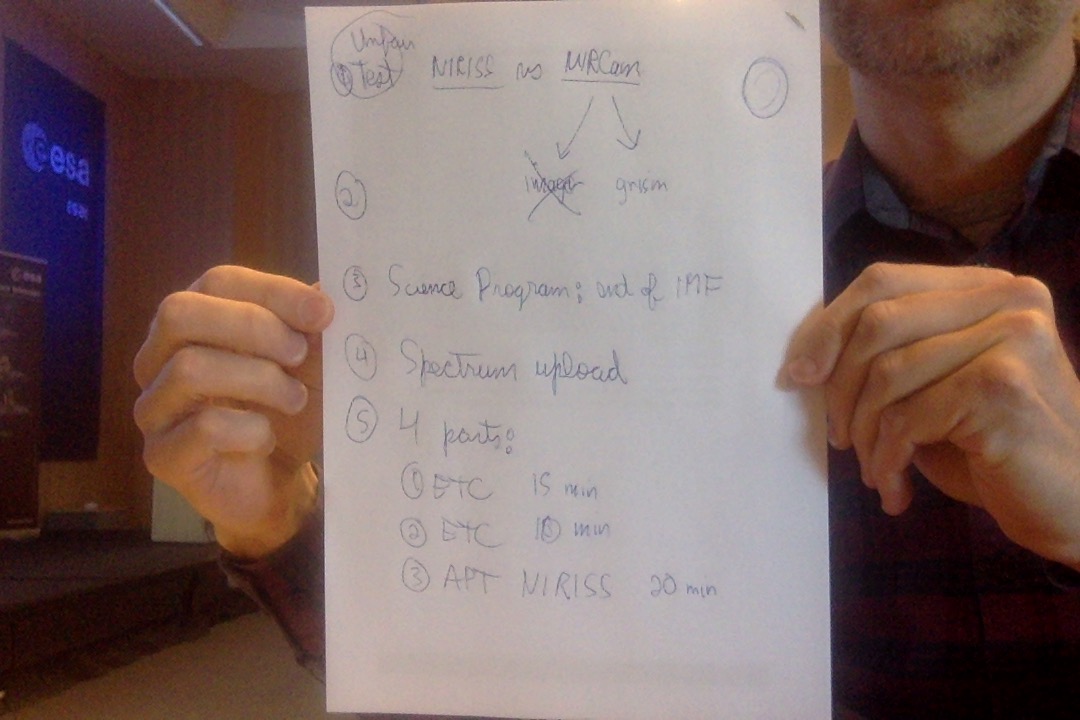 Unfair
① Test NIRISS vs NIRCam
imager grism
②
③ Science Program: end of IMF
④ Spectrum upload
⑤ 4 parts:
① ETC 15 min
② ETC min
③ APT NIRISS 20 min
esa
esac
esa